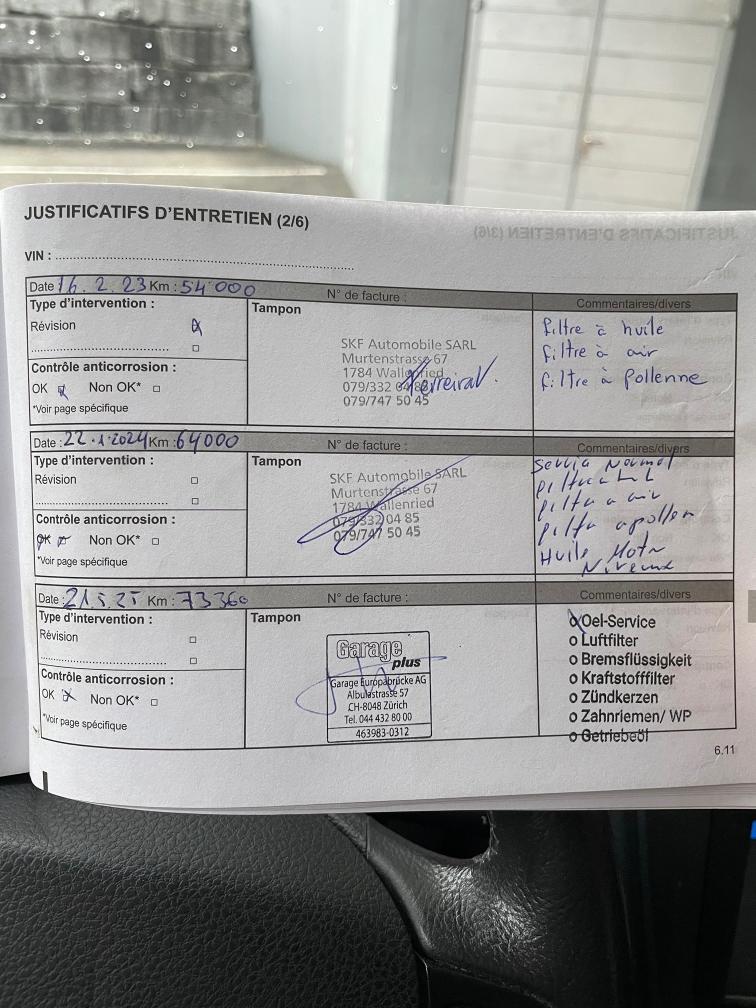 JUSTIFICATIFS D'ENTRETIEN (2/6)
VIN :
Date 16.2.23 Km : 54'000
N° de facture :
Commentaires/divers
Type d'intervention :
Révision
Contrôle anticorrosion :
OK Non OK*
*Voir page spécifique
Tampon
SKF Automobile SARL
Murtenstrasse 67
1784 Wallenried
079/332 04 85
079/747 50 45
filtre à huile
filtre à air
filtre à Pollenne
Date : 22.1.2024 Km : 64000
N° de facture :
Commentaires/divers
Type d'intervention :
Révision
Contrôle anticorrosion :
OK Non OK*
*Voir page spécifique
Tampon
SKF Automobile SARL
Murtenstrasse 67
1784 Wallenried
079/332 04 85
079/747 50 45
Normal
a air
Huile Motr
Date : 21.5.25 Km : 73360
N° de facture :
Commentaires/divers
Type d'intervention :
Révision
Contrôle anticorrosion :
OK Non OK*
*Voir page spécifique
Tampon
Garage
plus
Garage Europabrücke AG
Albulastrasse 57
CH-8048 Zürich
Tel. 044 432 80 00
463983-0312
Oel-Service
o Luftfilter
o Bremsflüssigkeit
o Kraftstofffilter
o Zündkerzen
o Zahnriemen/ WP
o Getriebeöl
6.11